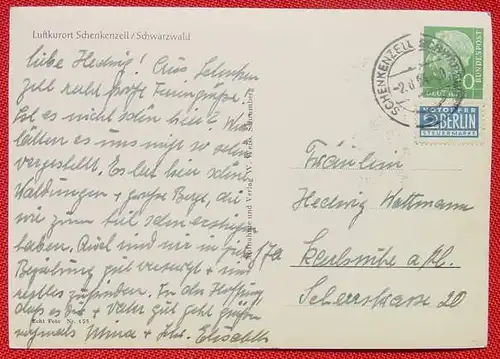 Luftkurort Schenkenzell / Schwarzwald
Liebe Hedwig! Aus Schenken-
zell recht herzl. Feriengrüße!
Ist es nicht schön hier? Wir
hätten es uns nicht so schön
vorgestellt. Es hat hier schöne
Waldungen + große Berge, die
wir zum teil schon erstiegen
haben. Auch sind wir in jeder
Beziehung gut versorgt + und
restlos zufrieden. In der Hoffnung
daß es Dir + Vater gut geht grüßen
nochmals Elisabeth
Echt Foto Nr. 155
Aufnahme und Verlag
SCHENKENZELL (SCHWARZWALD)
DEUTSCHE BUNDESPOST
NOTOPFER
2 BERLIN
STEUERMARKE
Fräulein
Hedwig Wattmann
17a
Karlsruhe a/Rh.
20